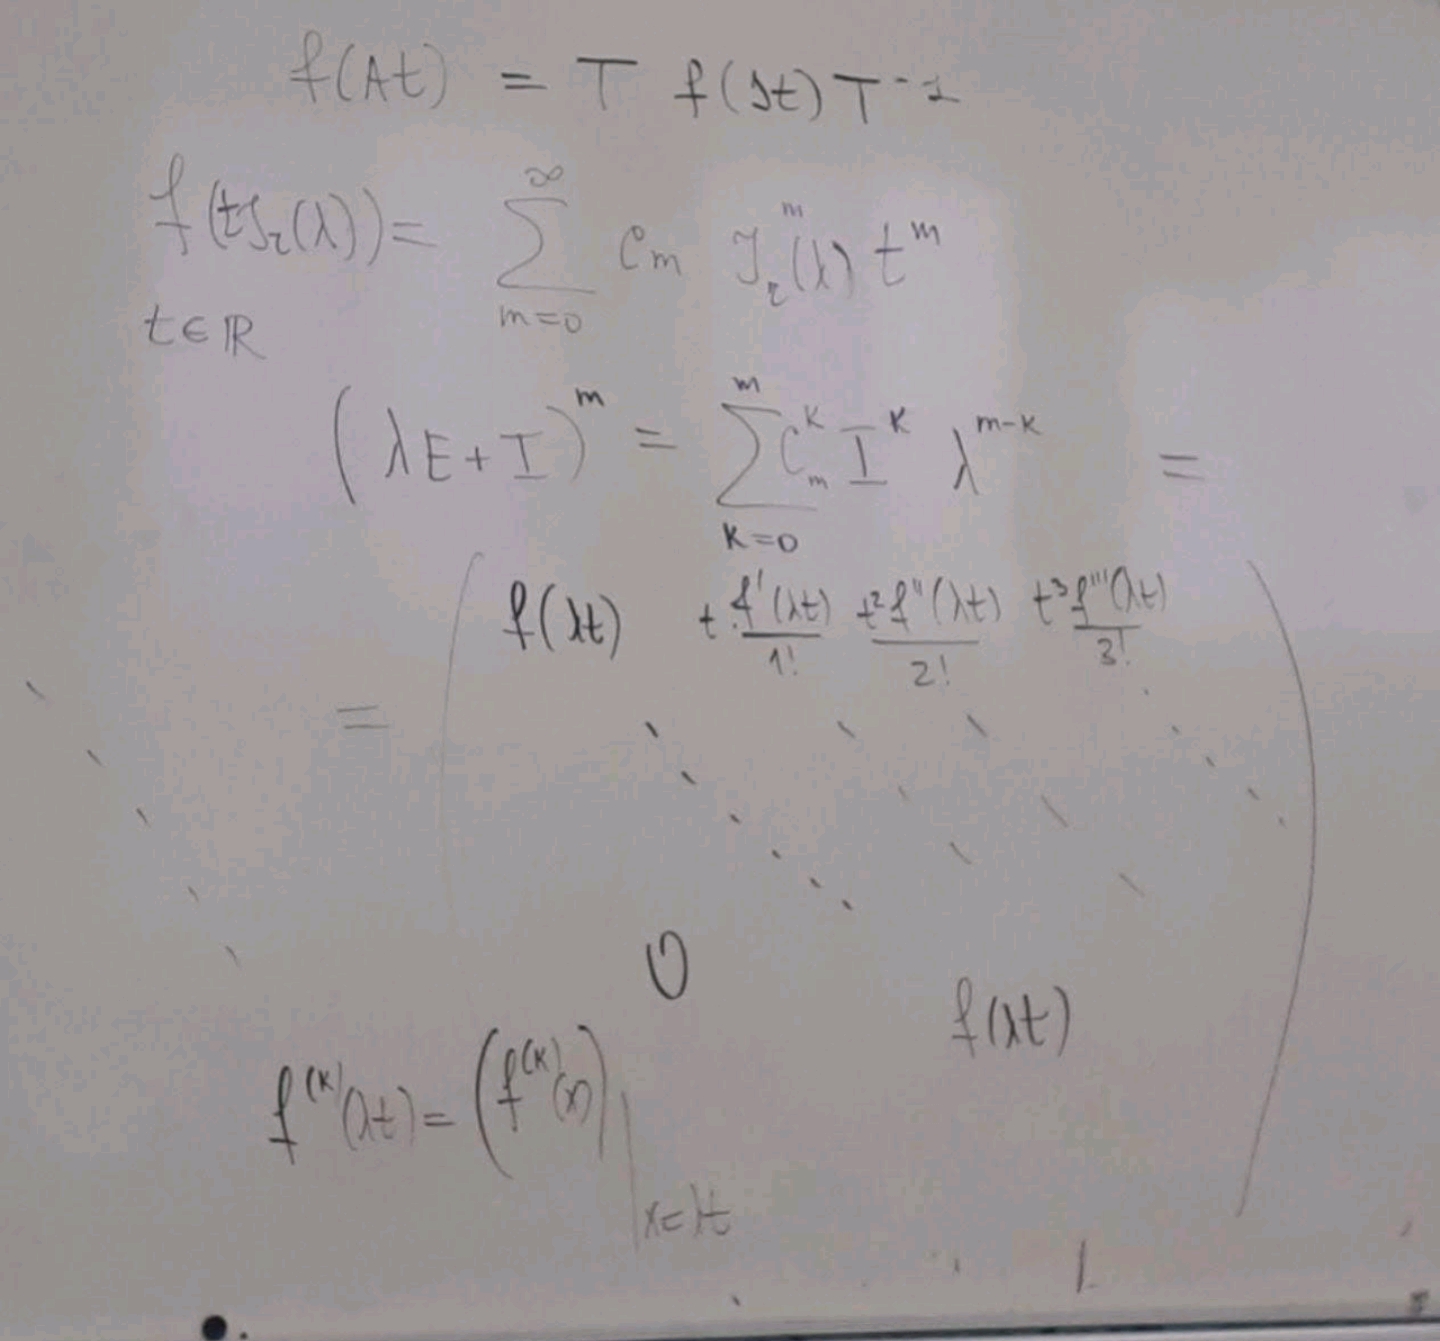 f(At) = T f(Jt) T⁻¹
f(tJ_r(λ)) = ∑_{m=0}^{∞} C_m J_r^m(λ) t^m
t ∈ ℝ
(λE + I)^m = ∑_{k=0}^{m} C_m^k I^k λ^{m-k} =
= ( f(λt) t·f'(λt)/1! t²f''(λt)/2! t³f'''(λt)/3!
0 f(λt) )
f^{(k)}(λt) = (f^{(k)}(x))|_{x=λt}